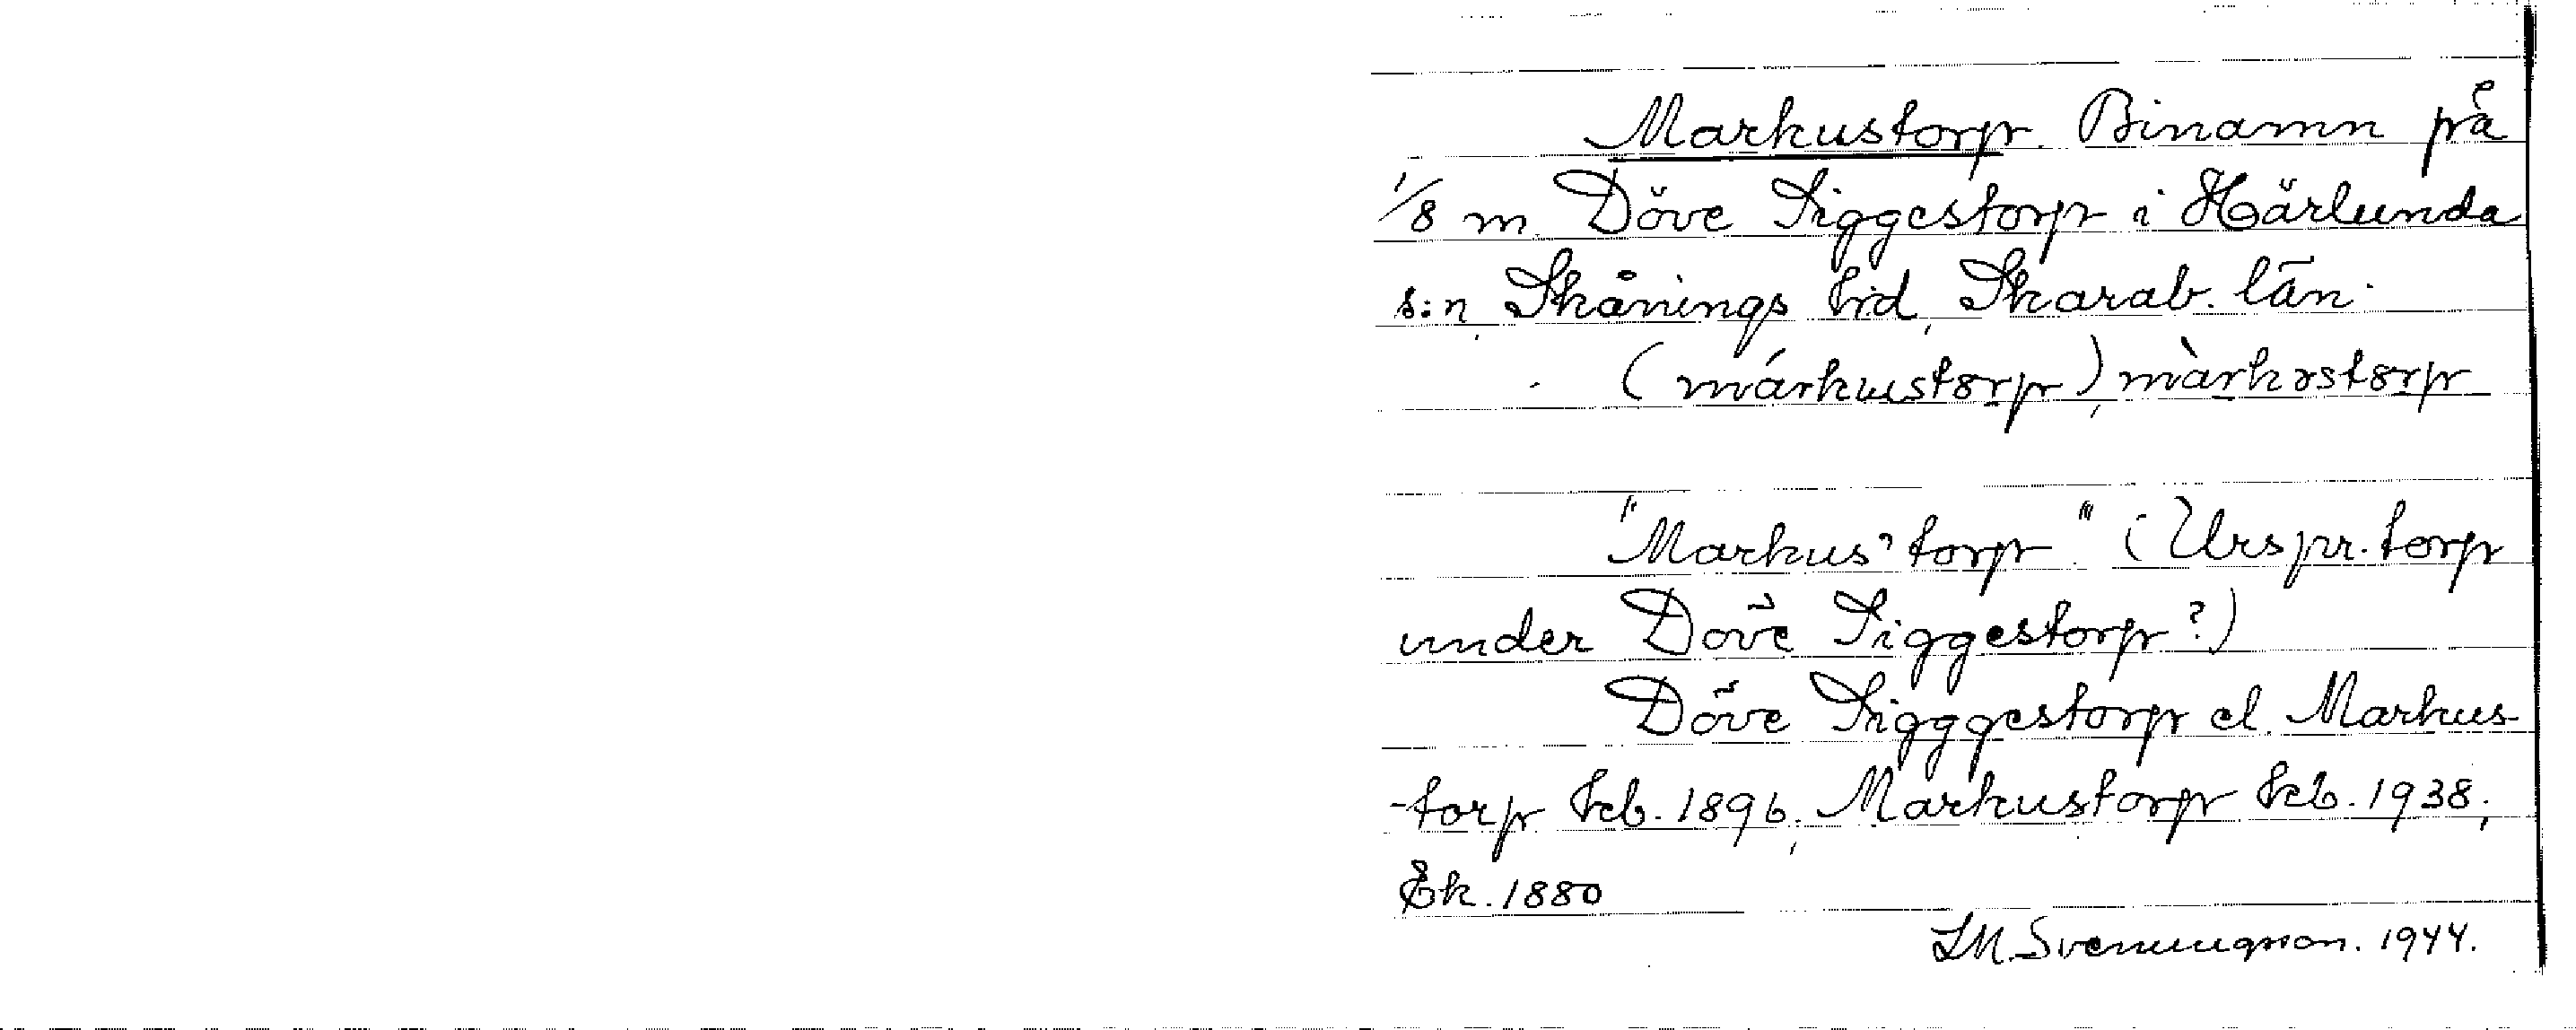 Markustorp. Binamn på
1/8 m. Döve Siggestorp i Härlunda
s:n, Skånings hd, Skarab. län.
(márkustorp), màrkostorp
"Markus' torp" (Urspr. torp
under Döve Siggestorp?)
Döve Sigggestorp el. Markus-
-torp kb. 1896, Markustorp kb. 1938;
Ek. 1880
LM. Svenungsson. 1944.